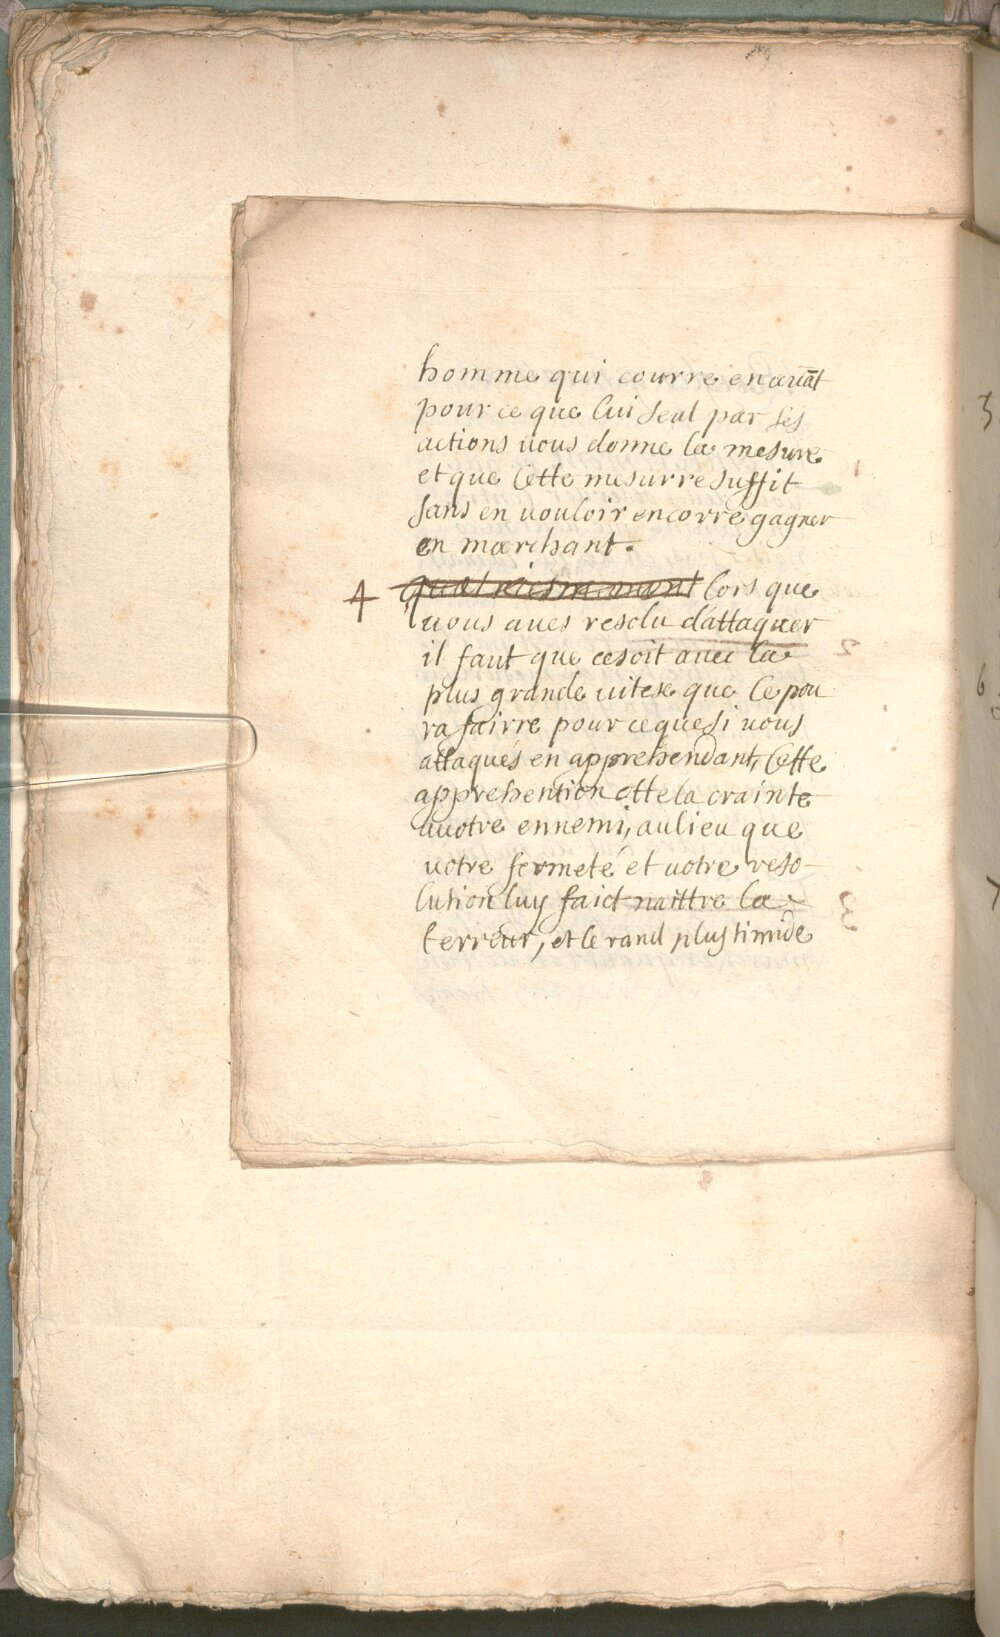 homme qui courre en auāt
pour ce que lui seul par ses
actions vous donne la mesure
et que Cette mesurre suffit
sans en vouloir encorre gagner
en marchant.
4 quatriesmemant lors que
vous aves resolu dattaquer
il faut que cesoit avec la
plus grande vitese que le pou
ra fairre pour ceque si vous
attaqués en apprehendant, Cette
apprehention otte la crainte
a votre ennemi, aulieu que
votre fermeté et votre reso-
lution luy faict naittre la
terreur, et le rand plus timide
3
6
7